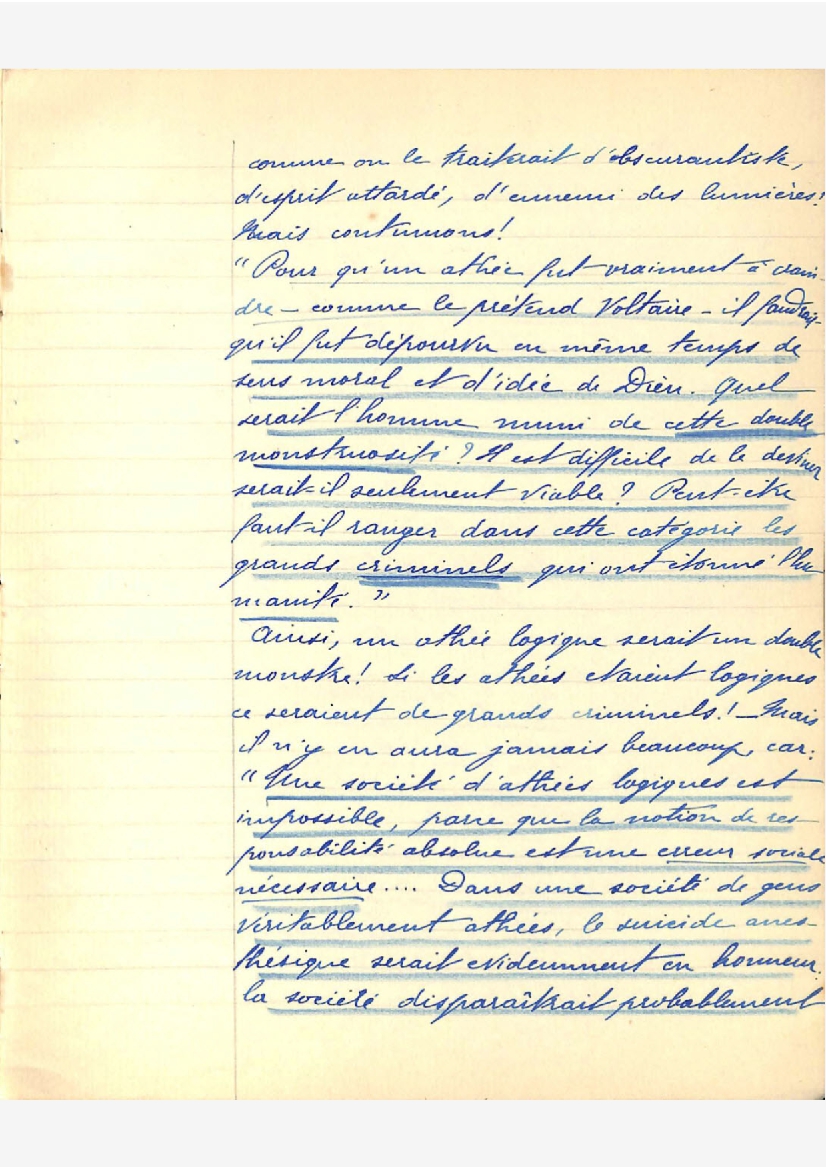 comme on le traiterait d'obscurantiste,
d'esprit attardé, d'ennemi des lumières!
Mais continuons!
"Pour qu'un athée fut vraiment à crain-
dre – comme le prétend Voltaire – il faudrait
qu'il fut dépourvu en même temps de
sens moral et d'idée de Dieu. Quel
serait l'homme muni de cette double
monstruosité? Il est difficile de le deviner
serait-il seulement viable? Peut-être
faut-il ranger dans cette catégorie les
grands criminels qui ont étonné l'hu
manité."
Ainsi, un athée logique serait un double
monstre! Si les athées étaient logiques
ce seraient de grands criminels! – Mais
il n'y en aura jamais beaucoup, car:
"Une société d'athées logiques est
impossible, parce que la notion de res-
ponsabilité absolue est une erreur sociale
nécessaire.... Dans une société de gens
véritablement athées, le suicide anes-
thésique serait evidemment en honneur.
la société disparaîtrait probablement